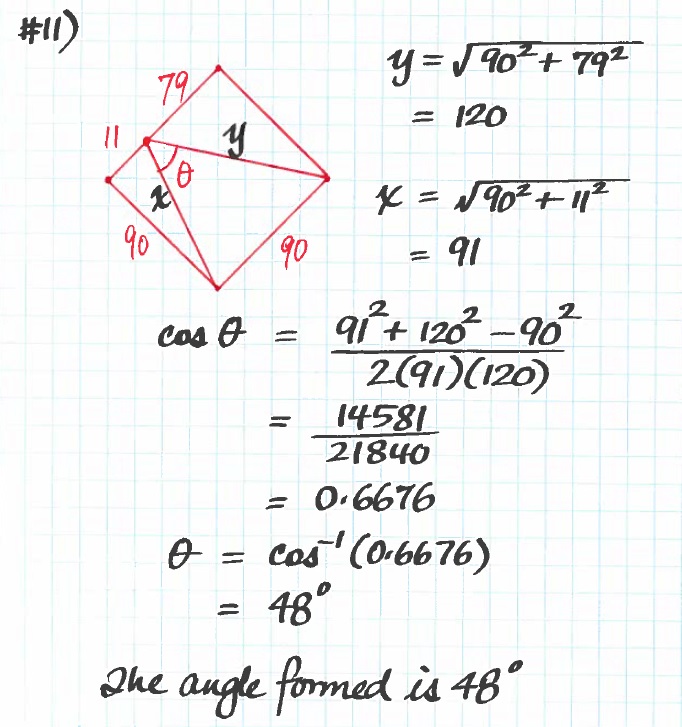 #11)
79
11
y
θ
x
90
90
y = √90² + 79²
= 120
x = √90² + 11²
= 91
cos θ = 91² + 120² - 90² / 2(91)(120)
= 14581 / 21840
= 0.6676
θ = cos⁻¹(0.6676)
= 48°
The angle formed is 48°